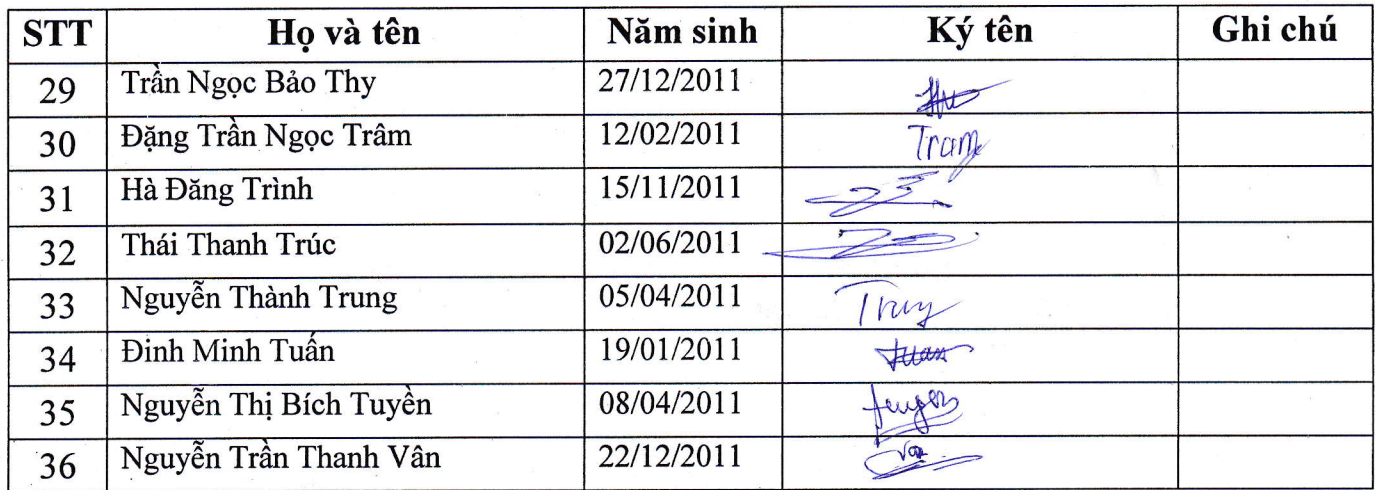 STT Họ và tên Năm sinh Ký tên Ghi chú
29 Trần Ngọc Bảo Thy 27/12/2011
30 Đặng Trần Ngọc Trâm 12/02/2011 Tram
31 Hà Đăng Trình 15/11/2011
32 Thái Thanh Trúc 02/06/2011
33 Nguyễn Thành Trung 05/04/2011
34 Đinh Minh Tuấn 19/01/2011
35 Nguyễn Thị Bích Tuyền 08/04/2011
36 Nguyễn Trần Thanh Vân 22/12/2011